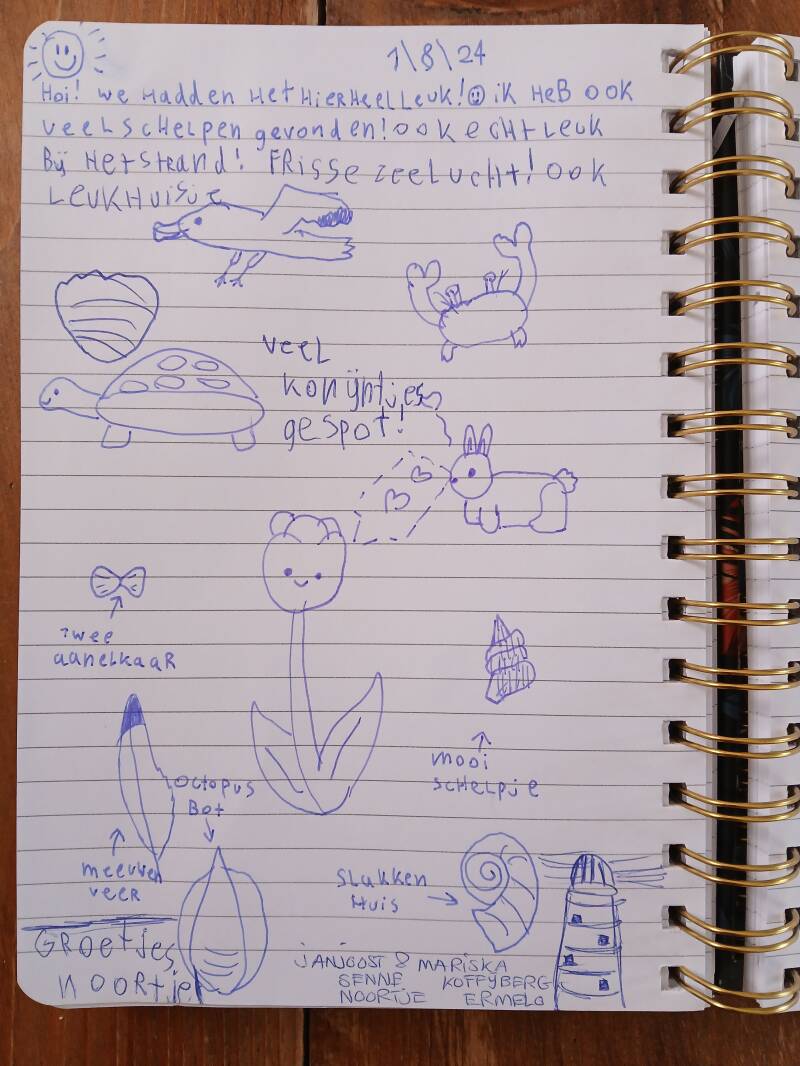 1\8\24
Hoi! We Hadden Het Hier Heel Leuk! ik HeB ook
veel schelpen gevonden! ook echt Leuk
Bij Het strand! FRisse zeelucht! ook
Leuk Huisje
veel
konijntjes
gespot!
twee
aanelkaar
mooi
schelpje
octopus
Bot
meeuwen
veer
Slakken
Huis
GRoetjes
Noortje
JANJOOST & MARISKA
SENNE KOFFYBERG
NOORTJE ERMELO